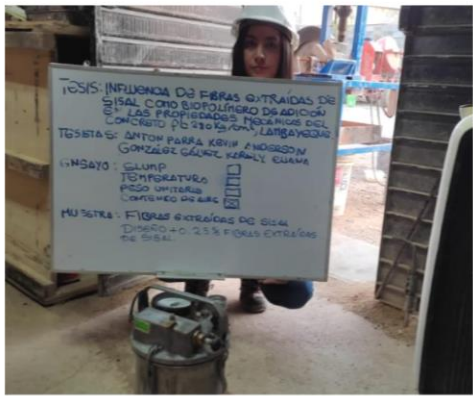 TESIS: INFLUENCIA DE FIBRAS EXTRAÍDAS DE
SISAL COMO BIOPOLÍMERO DE ADICIÓN
EN LAS PROPIEDADES MECÁNICAS DEL
CONCRETO f'c 210 kg/cm², LAMBAYEQUE
TESISTAS: ANTON PARRA KEVIN ANDERSON
GONZÁLEZ GÁLVEZ KAROLY ELIANA
ENSAYO: SLUMP
TEMPERATURA
PESO UNITARIO
CONTENIDO DE AIRE
MUESTRA: FIBRAS EXTRAÍDAS DE SISAL
DISEÑO + 0.25% FIBRAS EXTRAÍDAS
DE SISAL